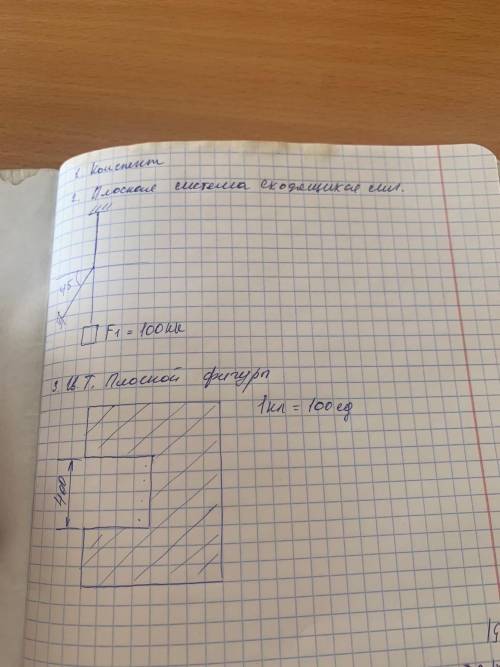 1. Конспект
2. Плоская система сходящихся сил.
45
F1 = 100кн
3. Ц.Т. Плоской фигуры
1кл = 100ед
400